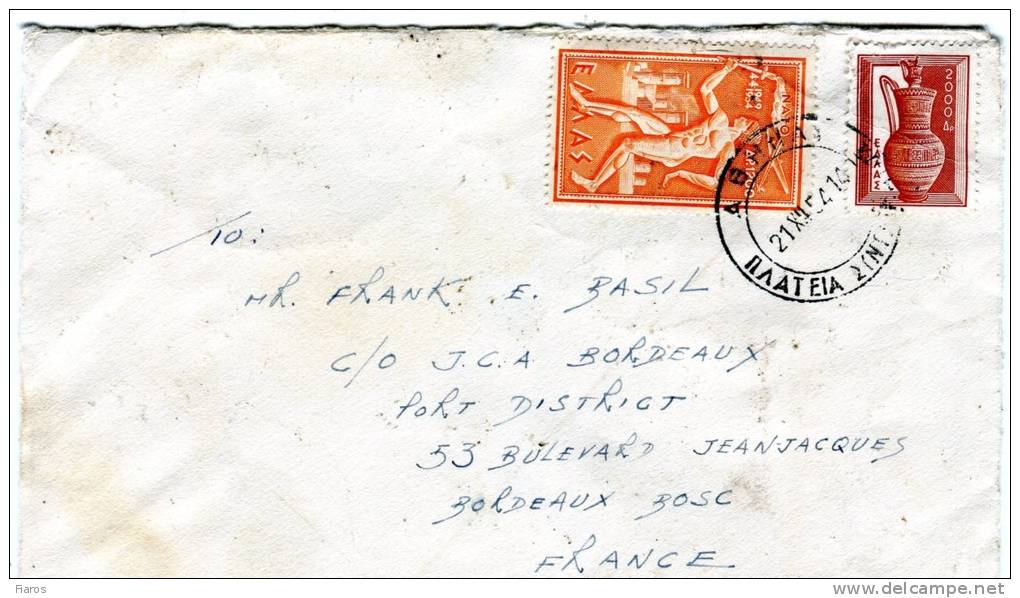 ΕΛΛΑΣ
ΝΑΤΟ
1949
1954
ΔΡ. 1200
2000 Δρ
ΕΛΛΑΣ
ΑΘΗΝΑΙ
21 XII 54 14
ΠΛΑΤΕΙΑ ΣΥΝΤ
TO:
MR. FRANK E. BASIL
C/O J.C.A BORDEAUX
PORT DISTRICT
53 BULEVARD JEANJACQUES
BORDEAUX BOSC
FRANCE
fiaros
www.delcampe.net